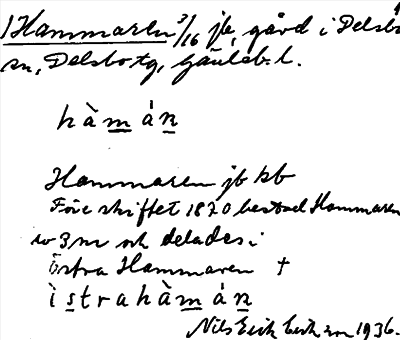 Hammaren 3/16 jb, gård i Delsbo
sn, Delsbo tg, Gävleb. l.
hàmán
Hammaren jb kb
Före skiftet 1870 bestod Hammaren
av 3 nr och delades i
Östra Hammaren †
ìstrahàmán
Nils Erik 1936.